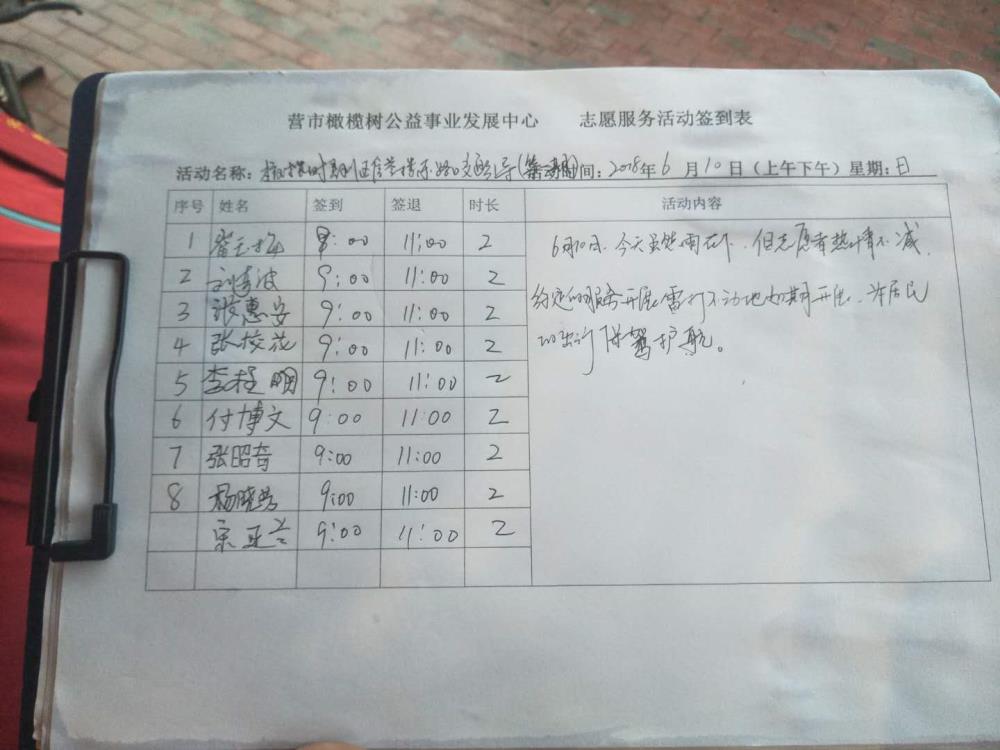 营市橄榄树公益事业发展中心 志愿服务活动签到表
活动名称: 间: 2018年6月10日(上午下午)星期:日
序号 姓名 签到 签退 时长 活动内容
1 崔玉梅 9:00 11:00 2
2 刘青波 9:00 11:00 2
3 张惠安 9:00 11:00 2
4 张校花 9:00 11:00 2
5 李桂明 9:00 11:00 2
6 付博文 9:00 11:00 2
7 张昭奇 9:00 11:00 2
8 杨晓 9:00 11:00 2
宋亚兰 9:00 11:00 2
6月10日、今天虽然雨在下、但志愿者热情不减,
约定的服务开展雷打不动地如期开展、为居民
的出行保驾护航。